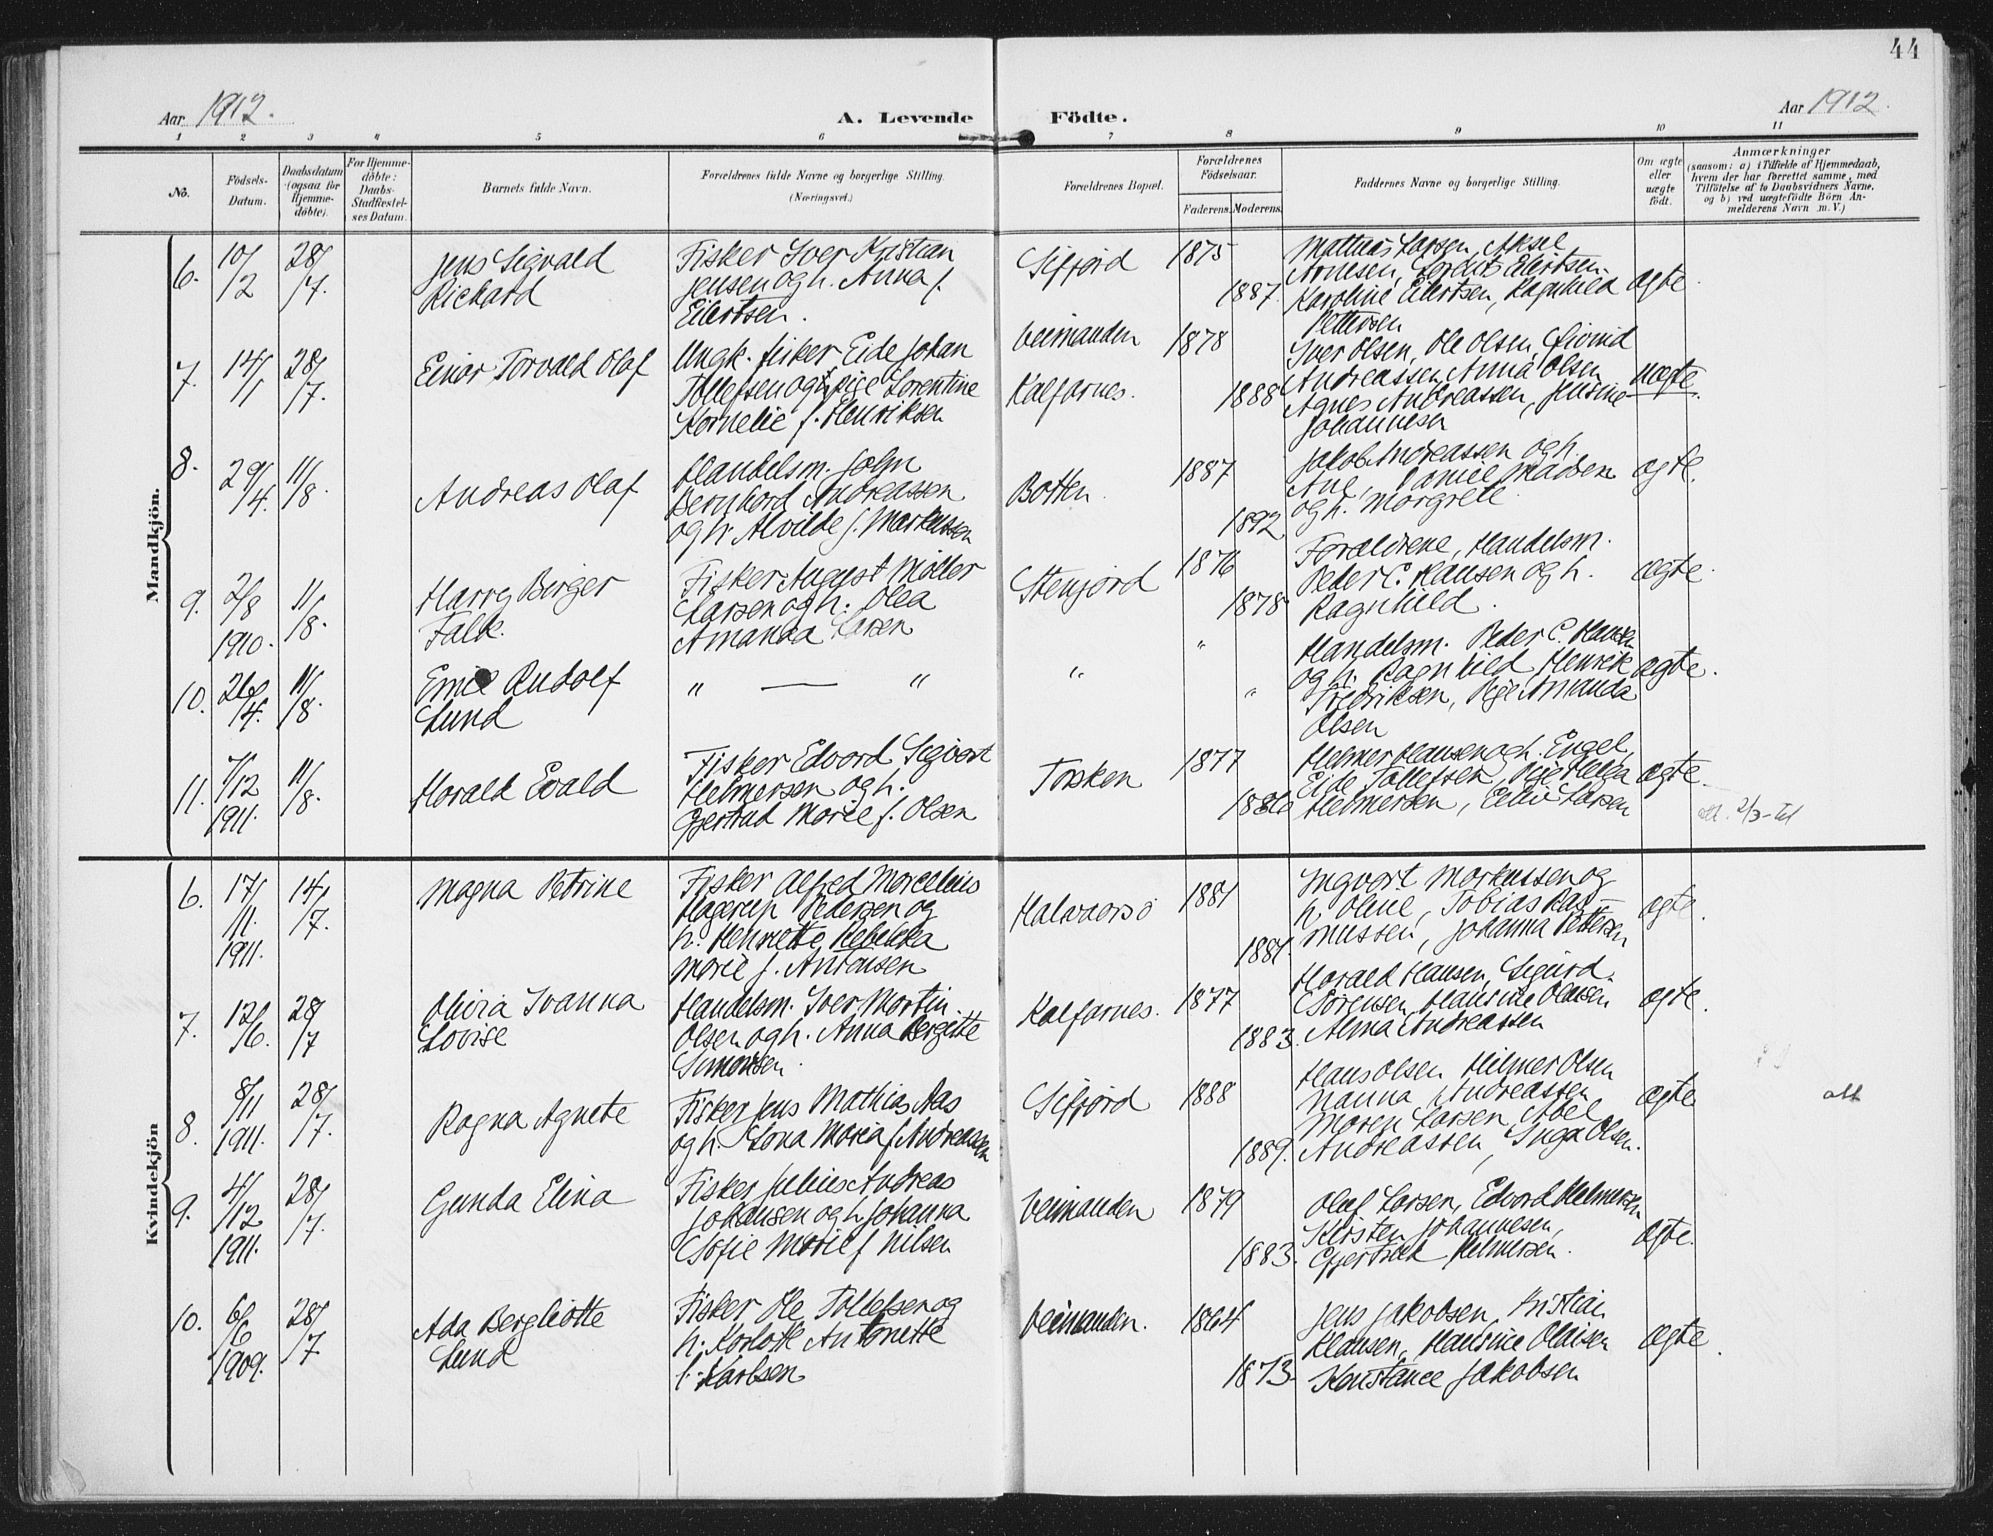 44
Aar 1912.
A. Levende Födte.
Aar 1912.
1 2 3 4 5 6 7 8 9 10 11
No.
Födsels-
Datum.
Daabsdatum
(ogsaa for
Hjemme-
döbte).
For Hjemme-
döbte:
Daabs-
Stadfæstel-
ses Datum.
Barnets fulde Navn.
Forældrenes fulde Navne og borgerlige Stilling.
(Næringsvei.)
Forældrenes Bopæl.
Forældrenes
Födselsaar.
Faderens. Moderens.
Faddernes Navne og borgerlige Stilling.
Om ægte
eller
uægte
födt.
Anmærkninger
(saasom: a) i Tilfælde af Hjemmedaab,
hvem der har forrettet samme, med
Tilföielse af to Daabsvidners Navne,
og b) ved uægtefödte Börn An-
melderens Navn m. V.)
Mandkjön.
6.
10/2
28/7.
Jens Sigvald
Rickard
Fisker Iver Kristian
Jensen og h. Anna f.
Eilertsen.
Sifjord
1875
1887.
Mathias Larsen, Aksel
Arnesen, Eilertsen.
Karoline Eilertsen, Ragnhild
Pettersen
ægte.
7.
14/1
28/7.
Einar Torvald Olaf
Ungk. fisker Eide Johan
Tollefsen og pige Lorentine
Kornelie f. Henriksen
Veimanden
Kalfarnes.
1878
1888
Iver Olsen, Ole Olsen, Eivind
Andreassen, Anna Olsen
Agnes Andreassen, Jensine
Johannesen
uægte.
8.
29/4.
11/8.
Andreas Olaf
Handelsm. John
Bernhard Andreassen
og h. Alvilde f. Markussen
Botten.
1887
1892
Jakob Andreassen og h.
Ane, Daniel Madsen
og h. Margrete
ægte.
9.
2/8
1910.
11/8.
Harry Birger
Falk.
Fisker August Möller
Larsen og h. Olea
Amanda Larsen
Stenfjord
1876
1878
Forældrene, Handelsm.
Peder C. Hansen og h.
Ragnhild.
ægte.
10.
26/4.
11/8.
Emil Rudolf
Lund
" — "
"
"
"
Handelsm. Peder C. Hansen
og h. Ragnhild, Henrik
Fredriksen, Pige Amanda
Olsen
ægte.
11.
7/12
1911.
11/8.
Harald Evald
Fisker Edvard Sigvart
Helmersen og h.
Gjertrud Marie f. Olsen
Torsken
1877
1886
Helmer Hansen og h. Engel,
Eide Tollefsen, Pige Helga
Helmersen, Larsen
ægte.
att. 2/3-41
Kvindekjön
6.
17/11.
1911.
14/7.
Magna Petrine
Fisker Alfred Marcelius
Hagerup Pedersen og
h. Henriette Rebekka
Marie f. Antonsen
Halvaarsö
1881
1881.
Ingvart Markussen og
h. Oline, Tobias Ras-
mussen, Johanna Pettersen
ægte.
7.
12/6.
28/7
Olivia Ivanna
Lovise
Handelsm. Iver Martin
Olsen og h. Anna Bergitte
Simonsen.
Kalfarnes.
1877
1883.
Harald Hansen, Sigurd
Sörensen, Hansine Olaisen
Alma Andreassen
ægte.
8.
8/11
1911.
28/7.
Ragna Agnete
Fisker Jens Mathias Aas
og h. Lona Maria f. Andreassen
Sifjord
1888
1889.
Hans Olsen Hilmer Olsen
Nanna Andreassen
Maren Larsen, Abel
Andreassen, Inga Olsen.
ægte
att
9.
4/12
1911.
28/7.
Gunda Elina
Fisker Julius Andreas
Johansen og h. Johanna
Sofie Marie f. Nilsen
Veimanden
1879
1883.
Olaf Larsen, Edvard Helmersen
Kirsten Johannesen,
Gjertrud Helmersen.
ægte.
10.
6/6
1909.
28/7
Ada Bergliotte
Lund
Fisker Ole Tollefsen og
h. Karlotte Antonette
f. Karlsen
Veimanden.
1864
1873.
Jens Jakobsen, Kristian
Klausen, Hansine Olaisen
Konstance Jakobsen
ægte.